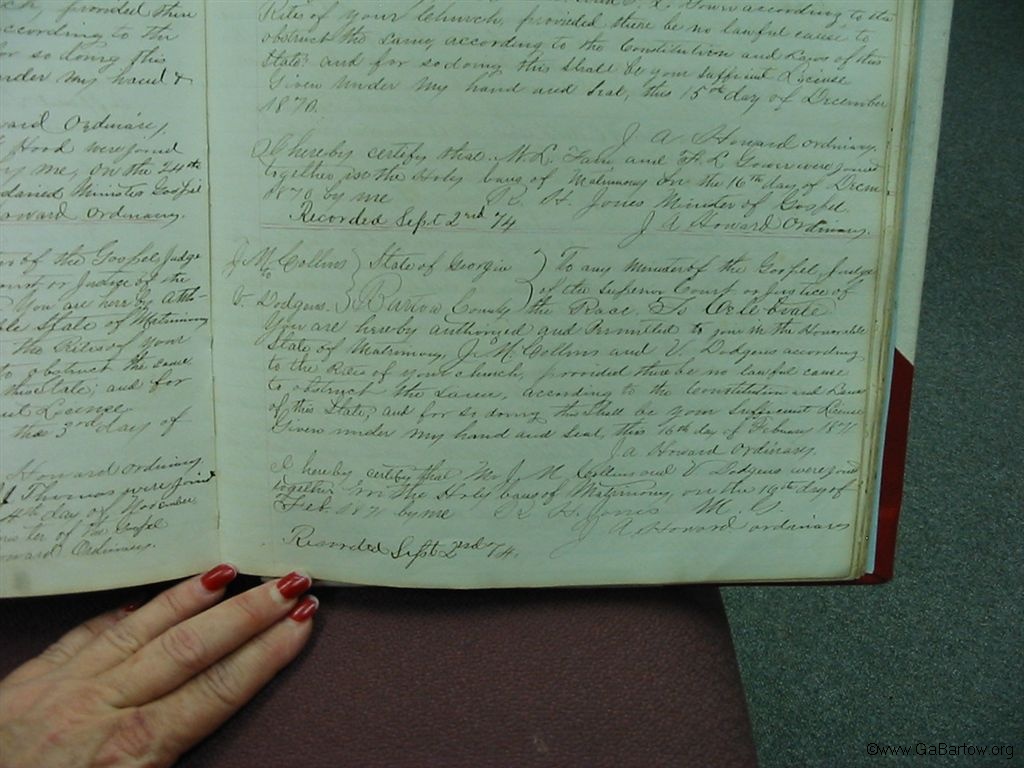 provided there
according to the
for so doing this
under my hand &
Howard Ordinary,
Hood were joined
by me, on the 24th
ordained Minister Gospel
Howard Ordinary.
of the Gospel, Judge
or Justice of the
You are hereby Auth-
State of Matrimony
the Rites of your
to obstruct the same
this State; and for
License
this 3rd day of
Howard Ordinary
Thomas were joined
4th day of November
Minister of the Gospel
Howard Ordinary.
L. Gown according to the
Rites of your Church, provided there be no lawful cause to
obstruct the same, according to the Constitution and Laws of this
State; and for so doing this shall be your sufficient License
Given under my hand and Seal, this 15th day of December
1870.
J A Howard ordinary.
I hereby certify that M. L. Fain and L Gown were joined
together in the Holy bans of Matrimony on the 16th day of Decem
1870 by me R. H. Jones Minister of Gospel.
Recorded Sept 2nd 74 J A Howard Ordinary.
J. M. Collins } State of Georgia } To any Minister of the Gospel, Judge
to of the Superior Court or Justice of
V. Dodgens. } Bartow County the Peace. To Celebrate
You are hereby authorized and Permitted to join in the Honorable
State of Matrimony, J. M. Collins and V. Dodgens according
to the Rites of your church, provided there be no lawful cause
to obstruct the same, according to the Constitution and Laws
of this State; and for so doing this shall be your sufficient License
Given under my hand and Seal, this 16th day of February 1871
J A Howard Ordinary.
I hereby certify that Mr J. M. Collins and V Dodgens were joined
together in the Holy bans of Matrimony, on the 19th day of
Feb 1871 by me R. H. Jones M. G.
J A Howard ordinary
Recorded Sept 2nd 74.
©www.GaBartow.org